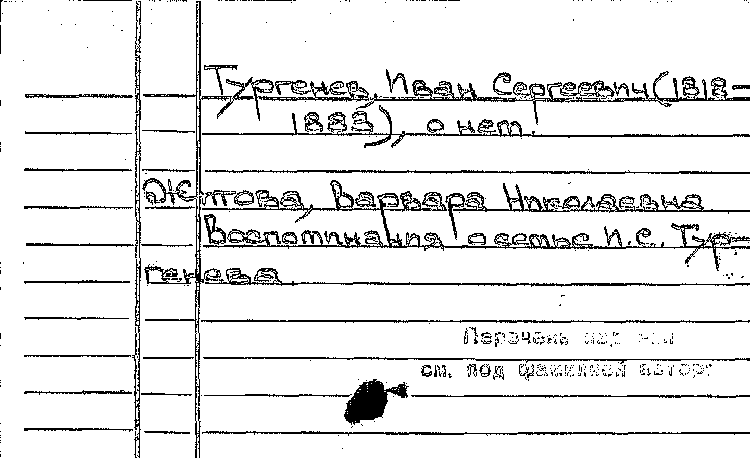 Тургенев, Иван Сергеевич (1818–
1883), о нем.
Житова, Варвара Николаевна
Воспоминания о семье И.С. Тур-
генева.
Перечень изданий
см. под фамилией автора